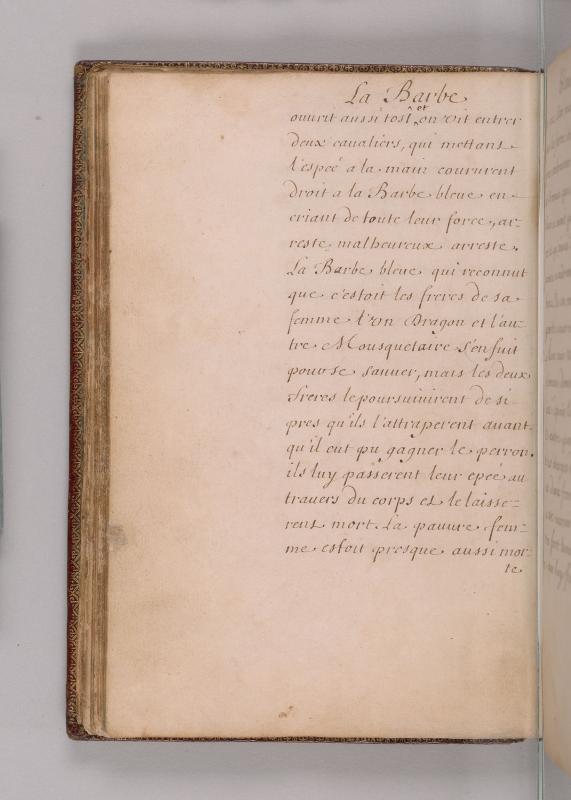 La Barbe
ouurit aussi tost ^et on vit entrer
deux caualiers, qui mettans
l'espeé a la main coururent
droit a la Barbe bleue en
criant de toute leur force, ar=
reste malheureux arreste.
La Barbe bleue qui reconnut
que c'estoit les freres de sa
femme l'vn Dragon et l'au=
tre Mousquetaire s'enfuit
pour se sauuer, mais les deux
freres le poursuiuirent de si
pres qu'ils l'attraperent auant
qu'il eut pu gagner le perron.
ils luy passerent leur epeé au
trauers du corps et le laisse=
rent mort. La pauure fem=
me estoit presque aussi mor=
te